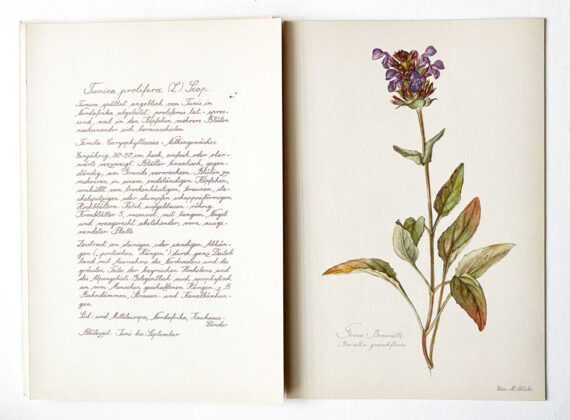 Tunica prolifera (L) Scop.
Tunica spätlat. angeblich von Tunis in
Nordafrika abgeleitet; proliferus lat. - spros-
send, weil in den Köpfchen mehrere Blüten
nacheinander sich herausschalen
Familie: Caryophyllaceae - Nelkengewächse
Einjährig, 30-50 cm hoch, einfach oder ober-
wärts verzweigt. Blätter linealisch, gegen-
ständig, am Grunde verwachsen. Blüten zu
mehreren in einem endständigen Köpfchen,
umhüllt von trockenhäutigen, braunen, sta-
chelspitzigen oder stumpfen schuppenförmigen
Hochblättern. Kelch aufgeblasen-röhrig.
Kronblätter 5, rosenrot, mit langem Nagel
und waagerecht abstehender, vorn ausge-
randeter Platte
Zerstreut an steinigen oder sandigen Abhän-
gen („pontischen Hängen") durch ganz Deutsch
land mit Ausnahme des Nordwestens und des
grössten Teiles der bayrischen Hochebene und
des Alpengebiets. Gelegentlich auch apophytisch
an vom Menschen geschaffenen Hängen, z B
Bahndämmen, Strassen- und Kanalböschun-
gen
Süd- und Mitteleuropa, Nordafrika, Kaukasus-
Länder
Blütezeit: Juni bis September
Grosse Braunelle
Brunella grandiflora